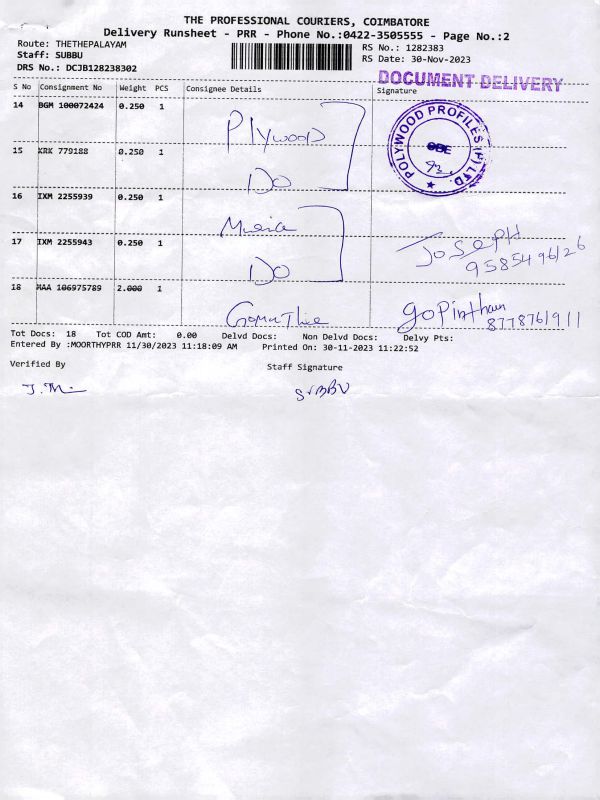 THE PROFESSIONAL COURIERS, COIMBATORE
Delivery Runsheet - PRR - Phone No.:0422-3505555 - Page No.:2
Route: THETHEPALAYAM
Staff: SUBBU
DRS No.: DCJB128238302
RS No.: 1282383
RS Date: 30-Nov-2023
DOCUMENT DELIVERY
S No Consignment No Weight PCS Consignee Details Signature
14 BGM 100072424 0.250 1 Plywood
POLYWOOD PROFILES (P) LTD. ★
15 KRK 779188 0.250 1 Do
16 IXM 2255939 0.250 1
17 IXM 2255943 0.250 1 Do
Joseph
9585496126
18 MAA 106975789 2.000 1
8778761911
Tot Docs: 18 Tot COD Amt: 0.00 Delvd Docs: Non Delvd Docs: Delvy Pts:
Entered By :MOORTHYPRR 11/30/2023 11:18:09 AM Printed On: 30-11-2023 11:22:52
Verified By
Staff Signature
SUBBU